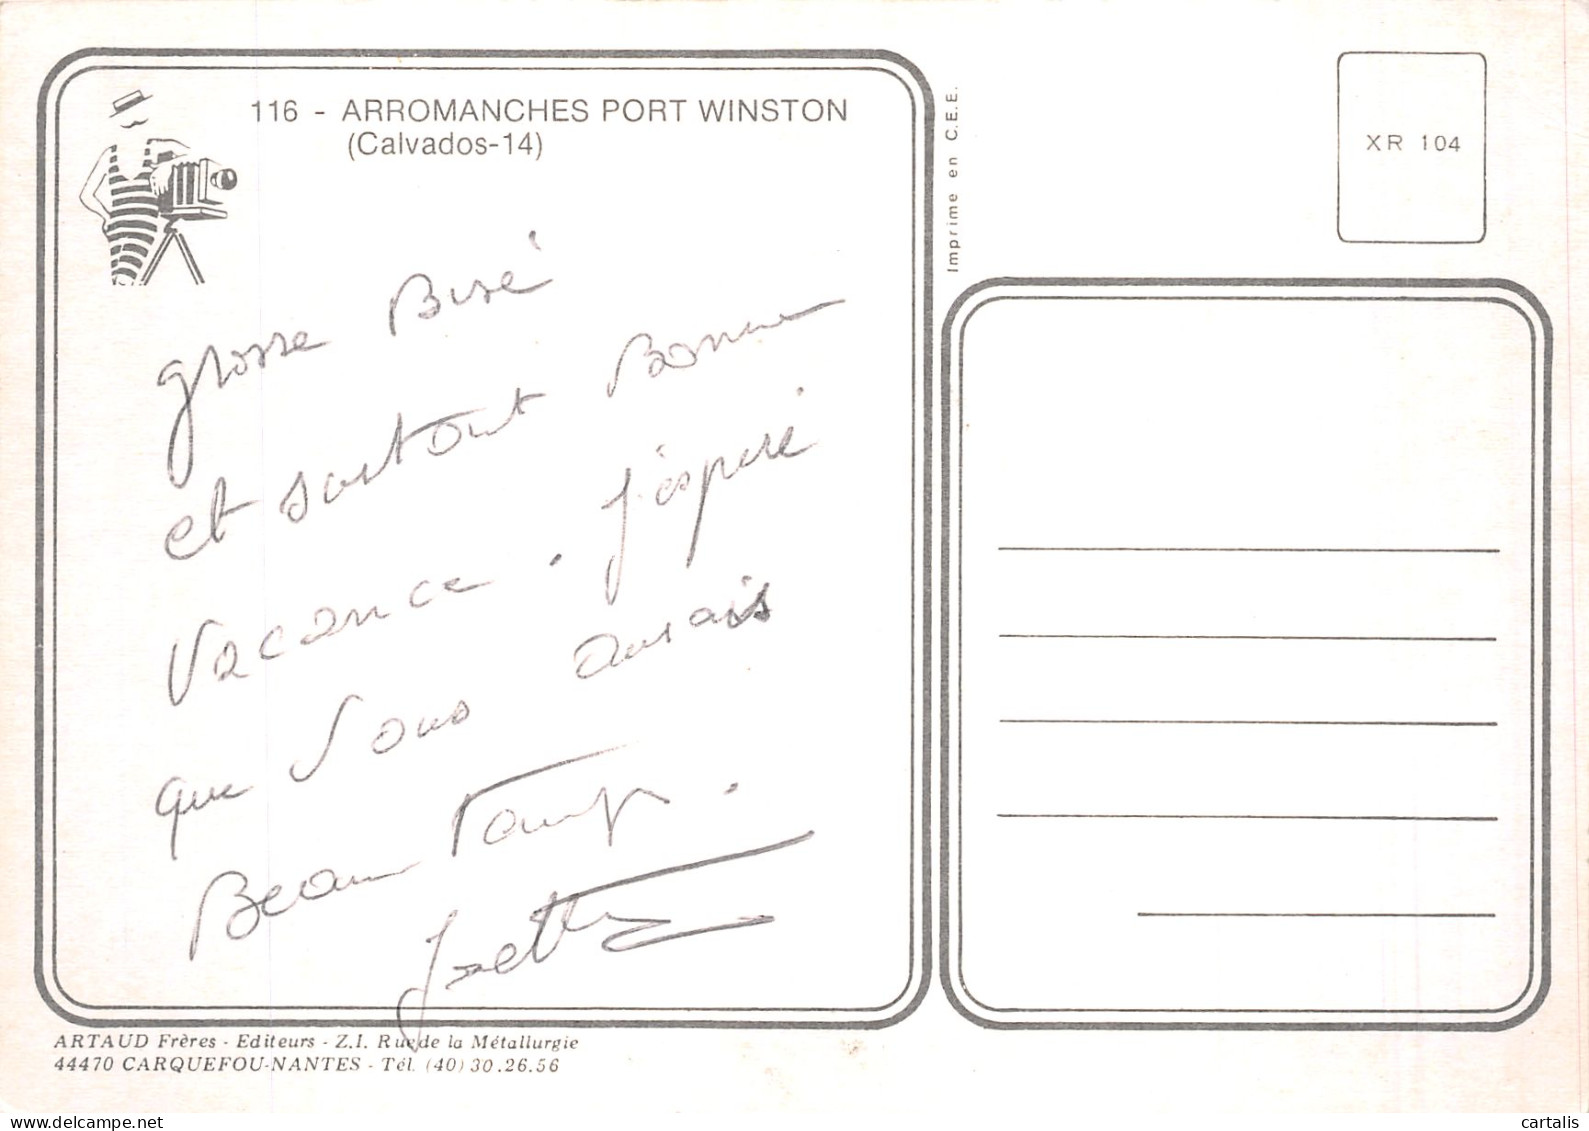 116 - ARROMANCHES PORT WINSTON
(Calvados-14)
grosse Bisé
et surtout Bonne
Vacance. J'espere
que vous aurais
Beau Temp.
Josette
ARTAUD Frères - Editeurs - Z.I. Rue de la Métallurgie
44470 CARQUEFOU-NANTES - Tél. (40) 30.26.56
Imprime en C.E.E.
XR 104
delcampe.net
cartalis